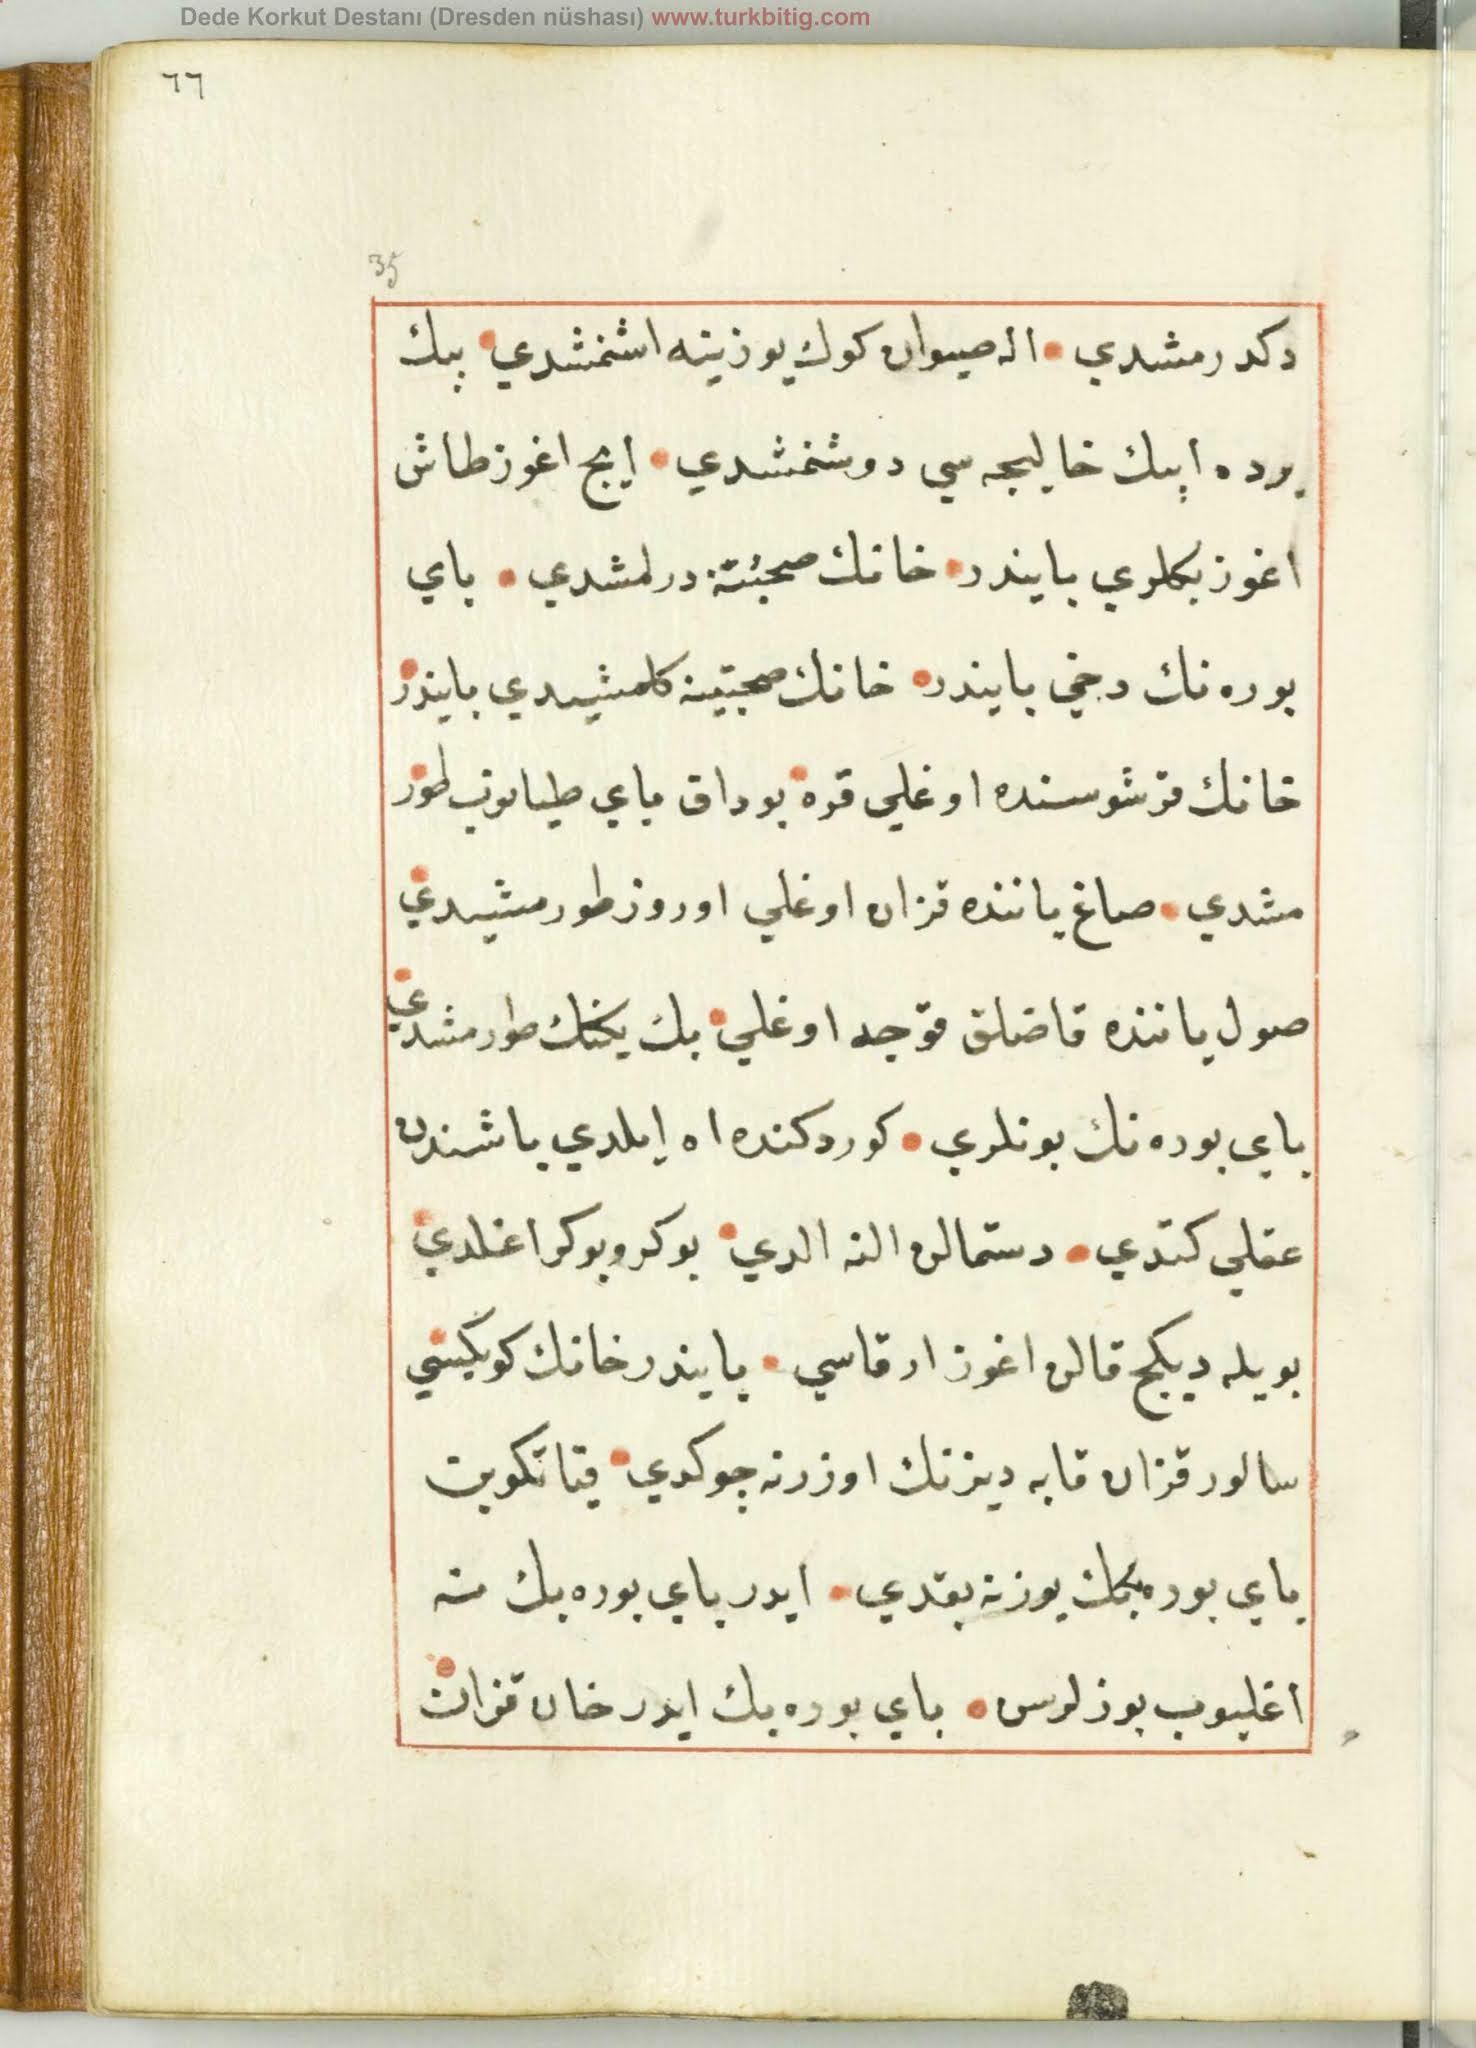 Dede Korkut Destanı (Dresden nüshası) www.turkbitig.com
٦٦
35
دكدرمشدي • اله صيوان كوك يوزينه اشنمشدي • بيك
يرده ايپك خاليجه سي دوشنمشدي • ايچ اغوز طاش
اغوز بكلري بايندر • خانك صحبتنه درلمشدي • باي
بوره نك دخي بايندر • خانك صحبتينه كلمشيدي بايندر
خانك قرشوسنده اوغلي قره بوداق ياي طيانوب طور
مشدي • صاغ ياننده قزان اوغلي اوروز طورمشيدي
صول ياننده قاضلق قوجه اوغلي • بك يكنك طورمشدي
باي بوره نك بونلري • كوردكنده اه ايلدي باشندن
عقلي كتدي • دستمالن النه الدي • بوكرو بوكر اغلدي
بويله ديكج قالن اغوز ارقاسي • بايندر خانك كويكسي
سالور قزان قابه ديزنك اوزرنه چوكدي • قيا تكوبن
باي بوره بكك يوزنه بقدي • ايدر باي بوره بك نه
اغليوب بوزلرسن • باي بوره بك ايدر خان قزان